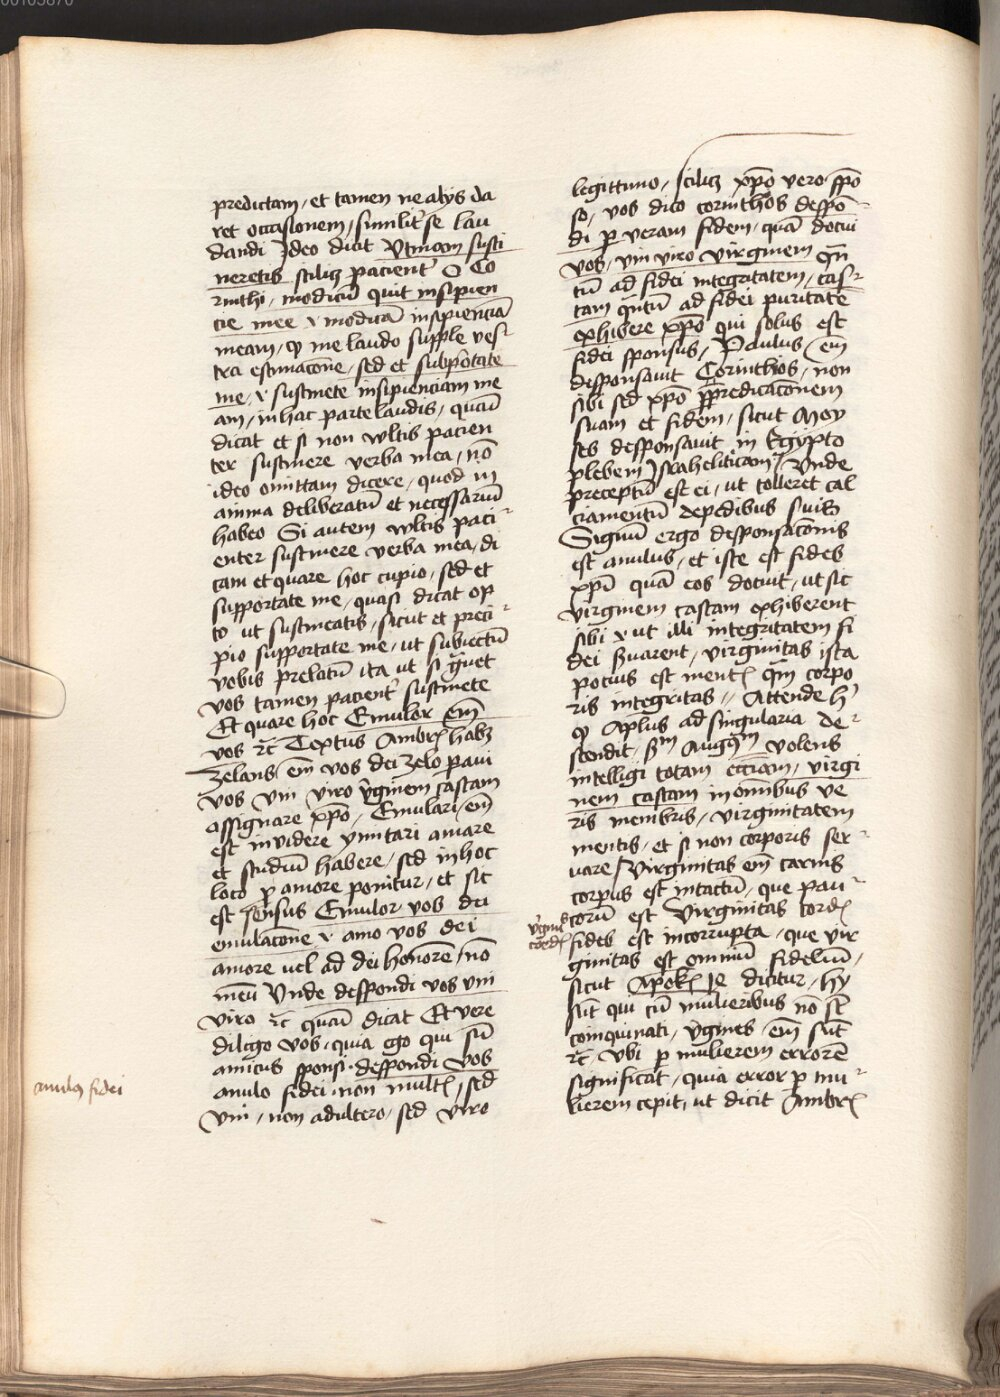 predictam / et tamen ne alijs da
ret occasionem / similit̓ se lau
dandi Jdeo dicit Vtinam susti
neretis scilicꝫ pacient̓ O Co
rinthi / modicū quit insipien
cie mee v modicā insipienciā
meam / qꝫ me laudo supple ves
tra estimacōne / sed et subportate
me / v sustinete insipienciam me
am / in hac parte laudis / quasi
dicat et si non vultis pacien
ter sustinere verba mea / nō
ideo omittam dicere / quod in
anima deliberatū et necessariū
habeo Si autem vultis paci
enter sustinere verba mea / di
cam et quare hoc cupio / sed et
supportate me / quasi dicat op
to ut sustineatis / sicut et preci
pio supportate me / ut subiectū
vobis prelatū ita ut si gͣuet
vos tamen pacient̓ sustinete
Et quare hoc Emulor em̄
vos ꝛc̄ Textus Ambrꝭ habꝫ
Zelans em̄ vos dei zelo paui
vos vni viro v̓ginem castam
assignare xp̄o / Emulari em̄
est invidere ymitari amare
et studiū habere / sed in hoc
loco ꝓ amore ponitur / et sic
est sensus Emulor vos dei
emulacōne v amo vos dei
amore uel ad dei honorē / nō
meū Vnde despondi vos vni
viro ꝛc̄ quasi dicat Et vere
diligo vos / quia ego qui sū
amicus sponsi despondi vos
anulo fidei / non multꝭ / sed
vni / non adultero / sed viro
anulꝯ fidei
legittimo / scilicꝫ xp̄o vero spō
so / vos dico corinthos despō
di ꝑ veram fidem / quā docui
vos / vni viro virginem qn̄
tū ad fidei integritatem / cas
tam qn̄tū ad fidei puritatē
exhibere xp̄o qui solus est
fidei sponsus / Paulus em̄
desponsauit Corinthos / non
sibi sed xp̄o ꝑ predicacōnem
suam et fidem / sicut Moy
ses desponsauit in Egipto
plebem Jsraheliticam / Vnde
preceptū est ei / ut tolleret cal
ciamentū de pedibus suis
Signū ergo desponsacōnis
est anulus / et iste est fides
xp̄i quā eos docuit / ut sic
virginem castam exhiberent
sibi v ut illi integritatem fi
dei s̓uarent / virginitas ista
potius est mentꝭ qͣm corpo
ris integritas // Attende hͨ
qꝫ Apl̄us ad singularia de
scendit / scd̓m Augꝰm volens
intelligi totam eccīam / virgi
nem castam in omībus ve
ris membris / virginitatem
mentis / et si non corporis ser
uare / Virginitas em̄ carnis
corpus est intactū / que pau
corū est Virginitas cordꝭ
v̓gi͞ns
cordꝭ
fides est incorrupta / que vir
ginitas est omniū fidelium /
sicut Apokꝭ 14 dicitur / hy
sūt qui cū mulieribus nō st̄
coinquinati / v̓gines em̄ sūt
ꝛc̄ / vbi ꝑ mulierem errorē
significat / quia error ꝑ mu
lierem cepit / ut dicit Ambrꝭ